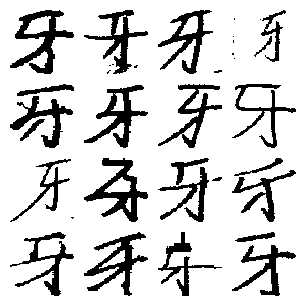 牙牙牙牙
牙牙牙牙
牙牙牙牙
牙牙牙牙